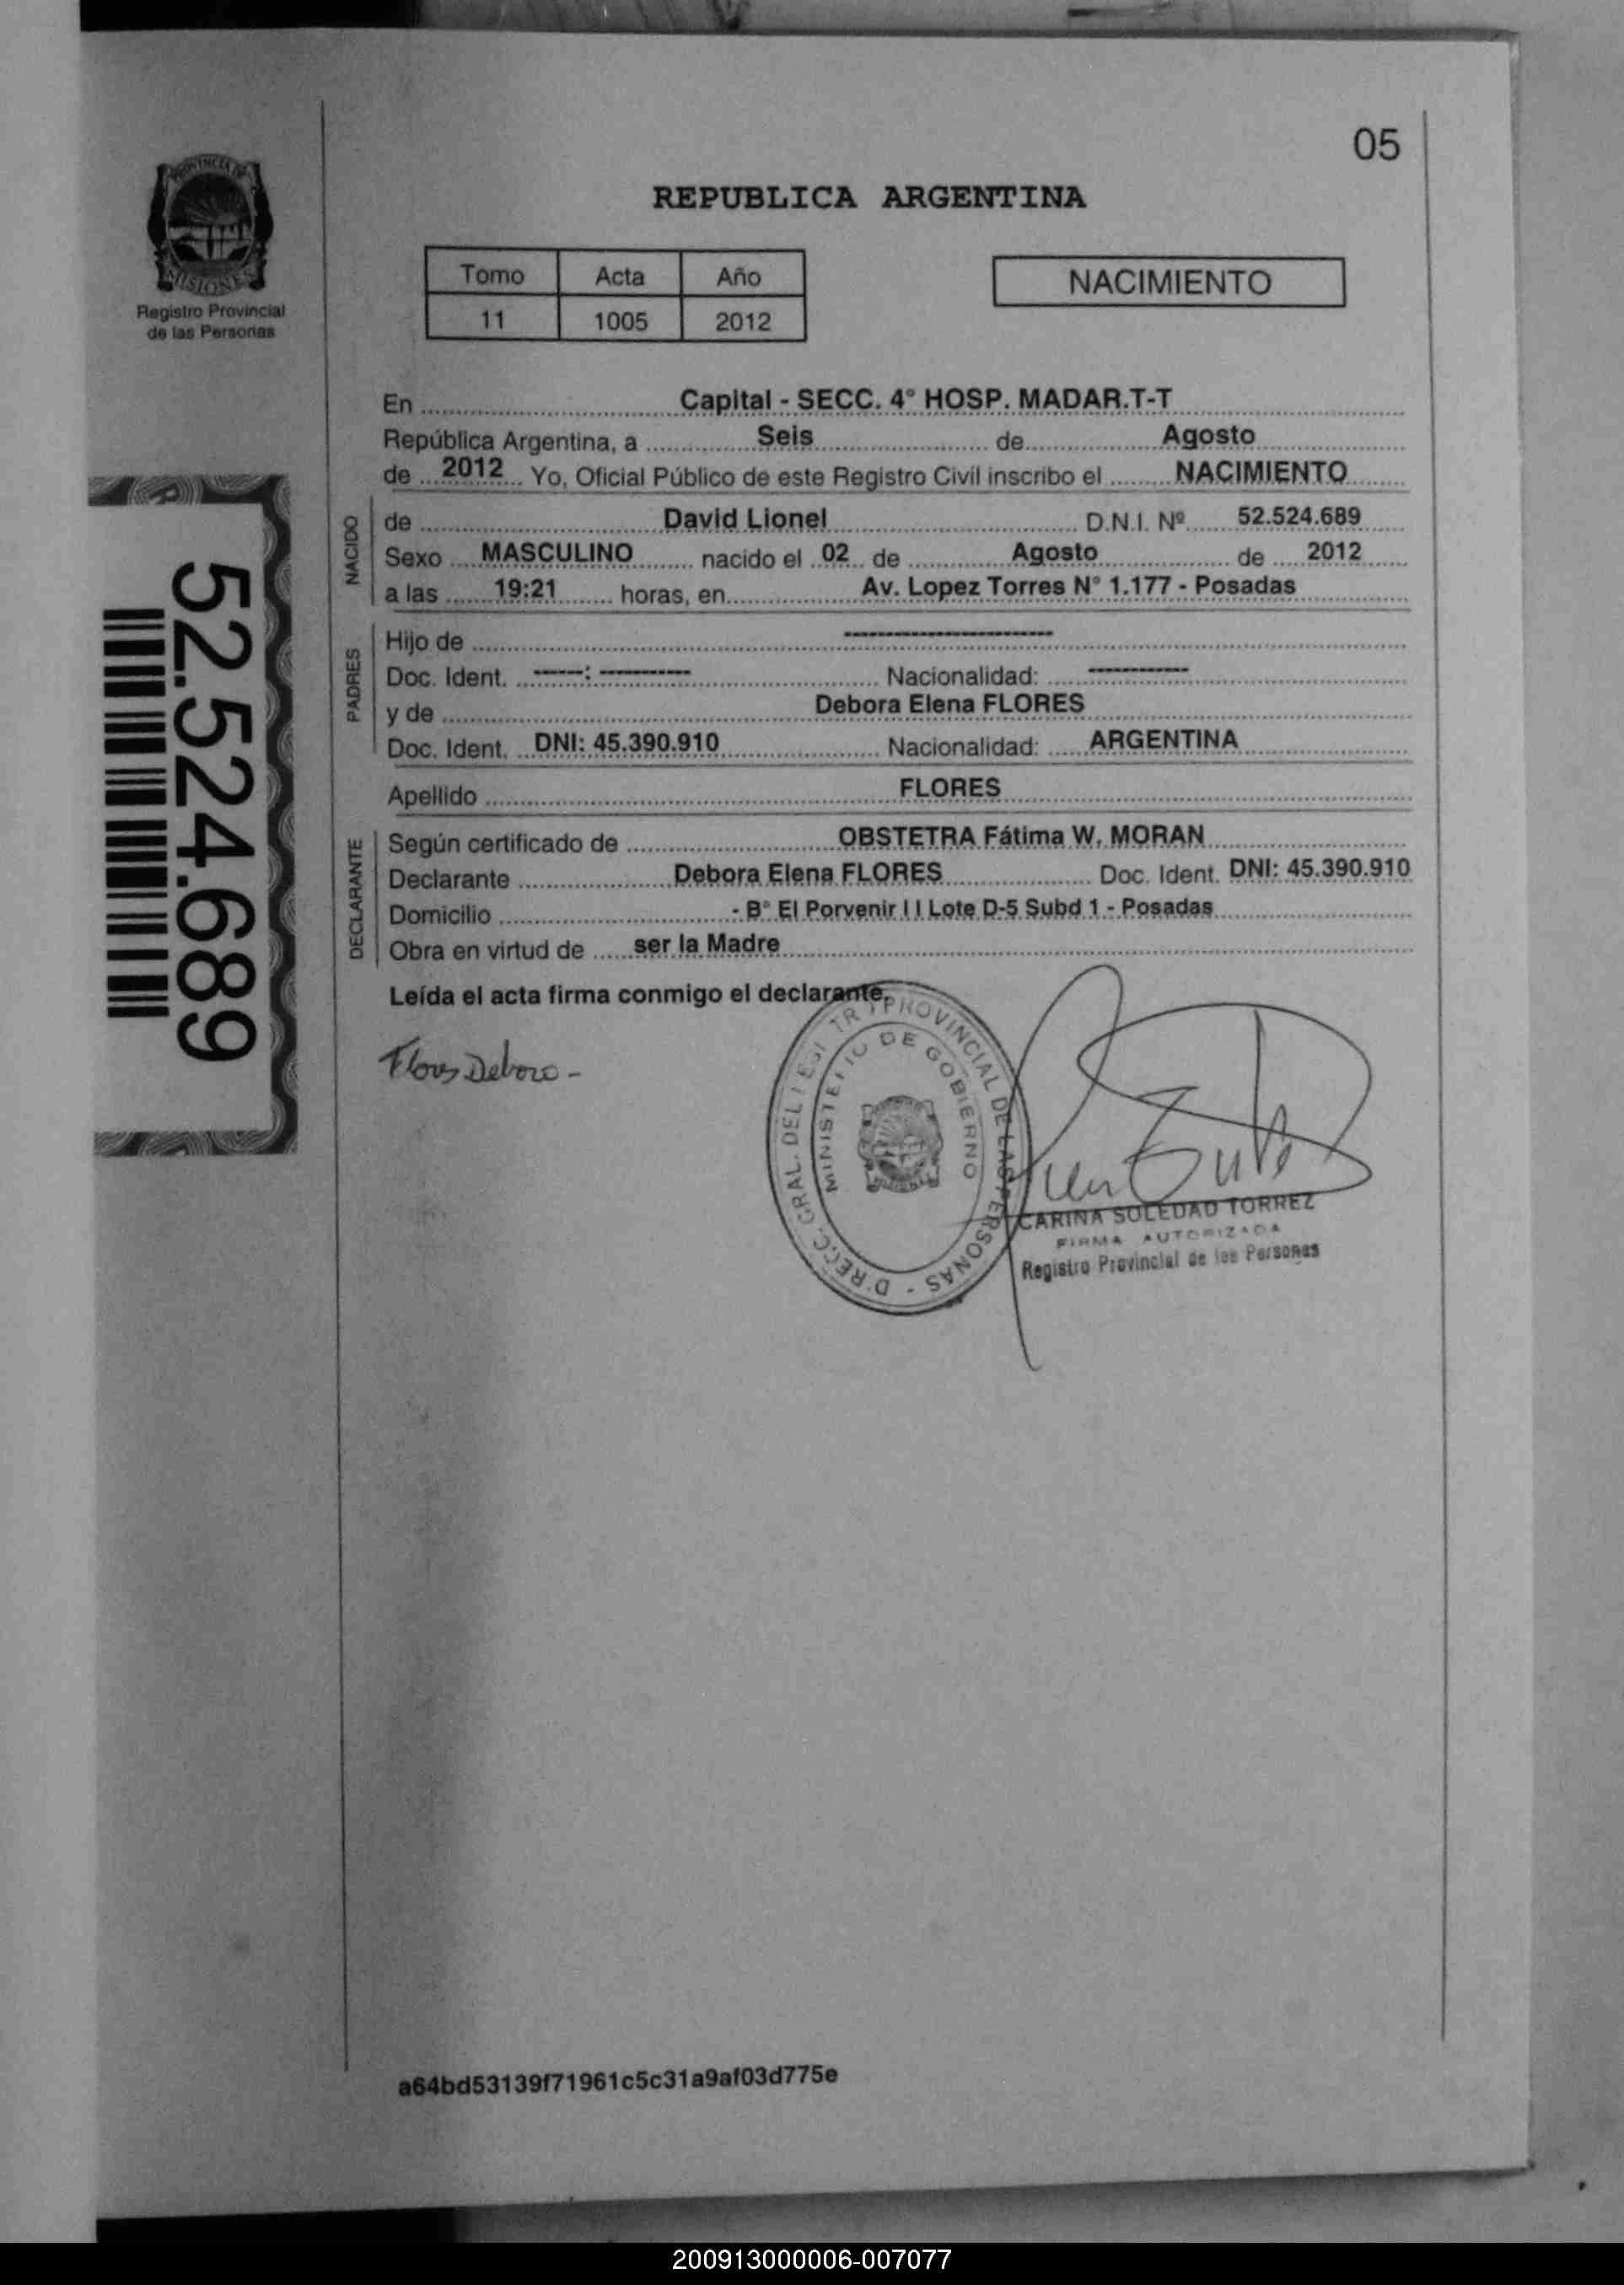 05
PROVINCIA DE
MISIONES
Registro Provincial
de las Personas
REPUBLICA ARGENTINA
Tomo Acta Año
11 1005 2012
NACIMIENTO
En Capital - SECC. 4° HOSP. MADAR.T-T
República Argentina, a Seis de Agosto
de 2012 Yo, Oficial Público de este Registro Civil inscribo el NACIMIENTO
NACIDO
de David Lionel D.N.I. Nº 52.524.689
Sexo MASCULINO nacido el 02 de Agosto de 2012
a las 19:21 horas, en Av. Lopez Torres N° 1.177 - Posadas
PADRES
Hijo de --------------------
Doc. Ident. -----: --------- Nacionalidad: ----------
y de Debora Elena FLORES
Doc. Ident. DNI: 45.390.910 Nacionalidad: ARGENTINA
Apellido FLORES
DECLARANTE
Según certificado de OBSTETRA Fátima W. MORAN
Declarante Debora Elena FLORES Doc. Ident. DNI: 45.390.910
Domicilio - B° El Porvenir I I Lote D-5 Subd 1 - Posadas
Obra en virtud de ser la Madre
Leída el acta firma conmigo el declarante.
52.524.689
Flores Debora -
PROVINCIAL DE LAS PERSONAS -
GRAL. DEL
MINISTERIO DE GOBIERNO
CARINA SOLEDAD TORREZ
FIRMA AUTORIZADA
Registro Provincial de las Personas
a64bd53139f71961c5c31a9af03d775e
200913000006-007077